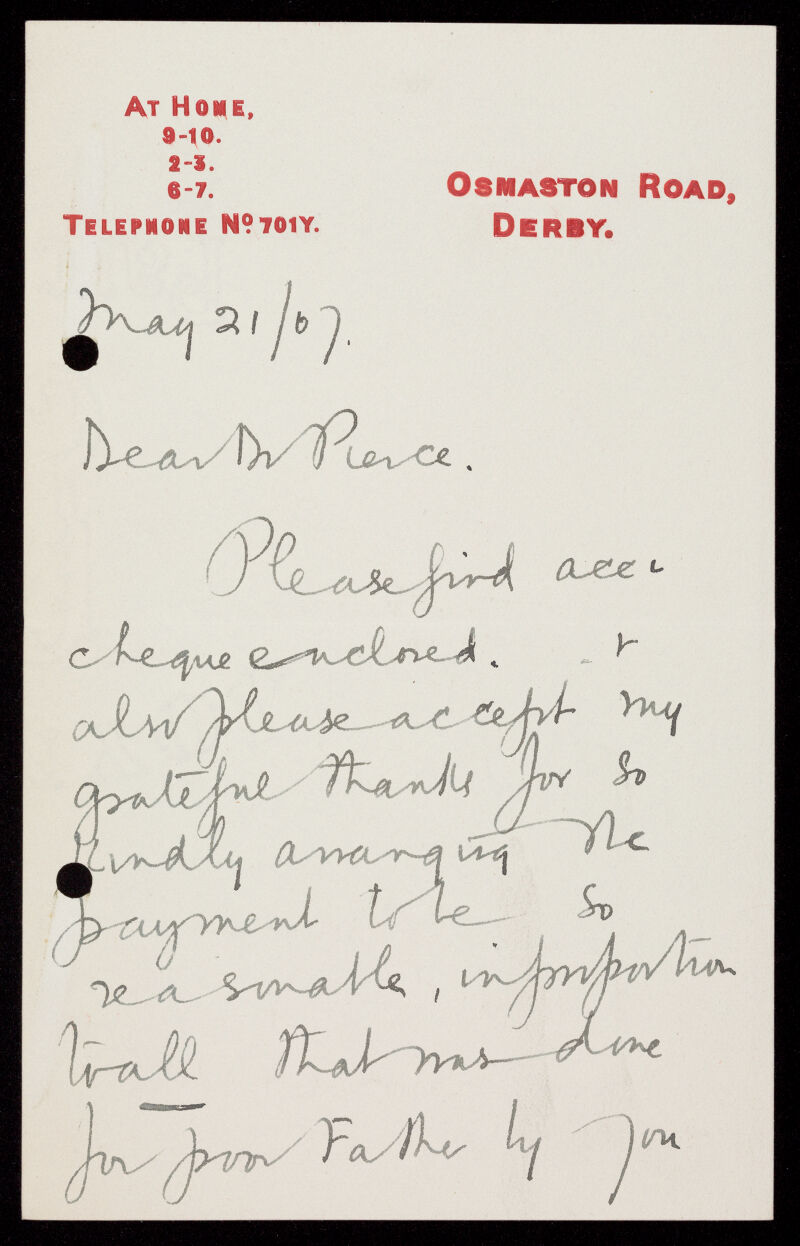 AT HOME,
9-10.
2-3.
6-7.
TELEPHONE No. 701Y.
OSMASTON ROAD,
DERBY.
May 21/07.
Dear Dr Pierce.
Please find acc.
cheque enclosed. - &
also please accept my
grateful thanks for so
kindly arranging the
payment to be so
reasonable, in proportion
to all that was done
for poor Father by you